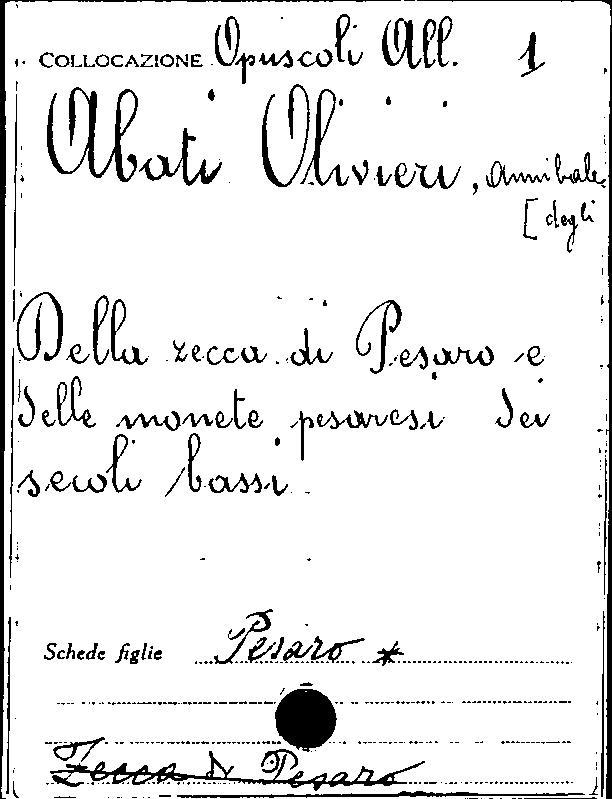 COLLOCAZIONE Opuscoli All. 1
Abati Olivieri, Annibale
[degli
Della zecca di Pesaro e
delle monete pesaresi dei
secoli bassi
Schede figlie Pesaro *
Zecca di Pesaro